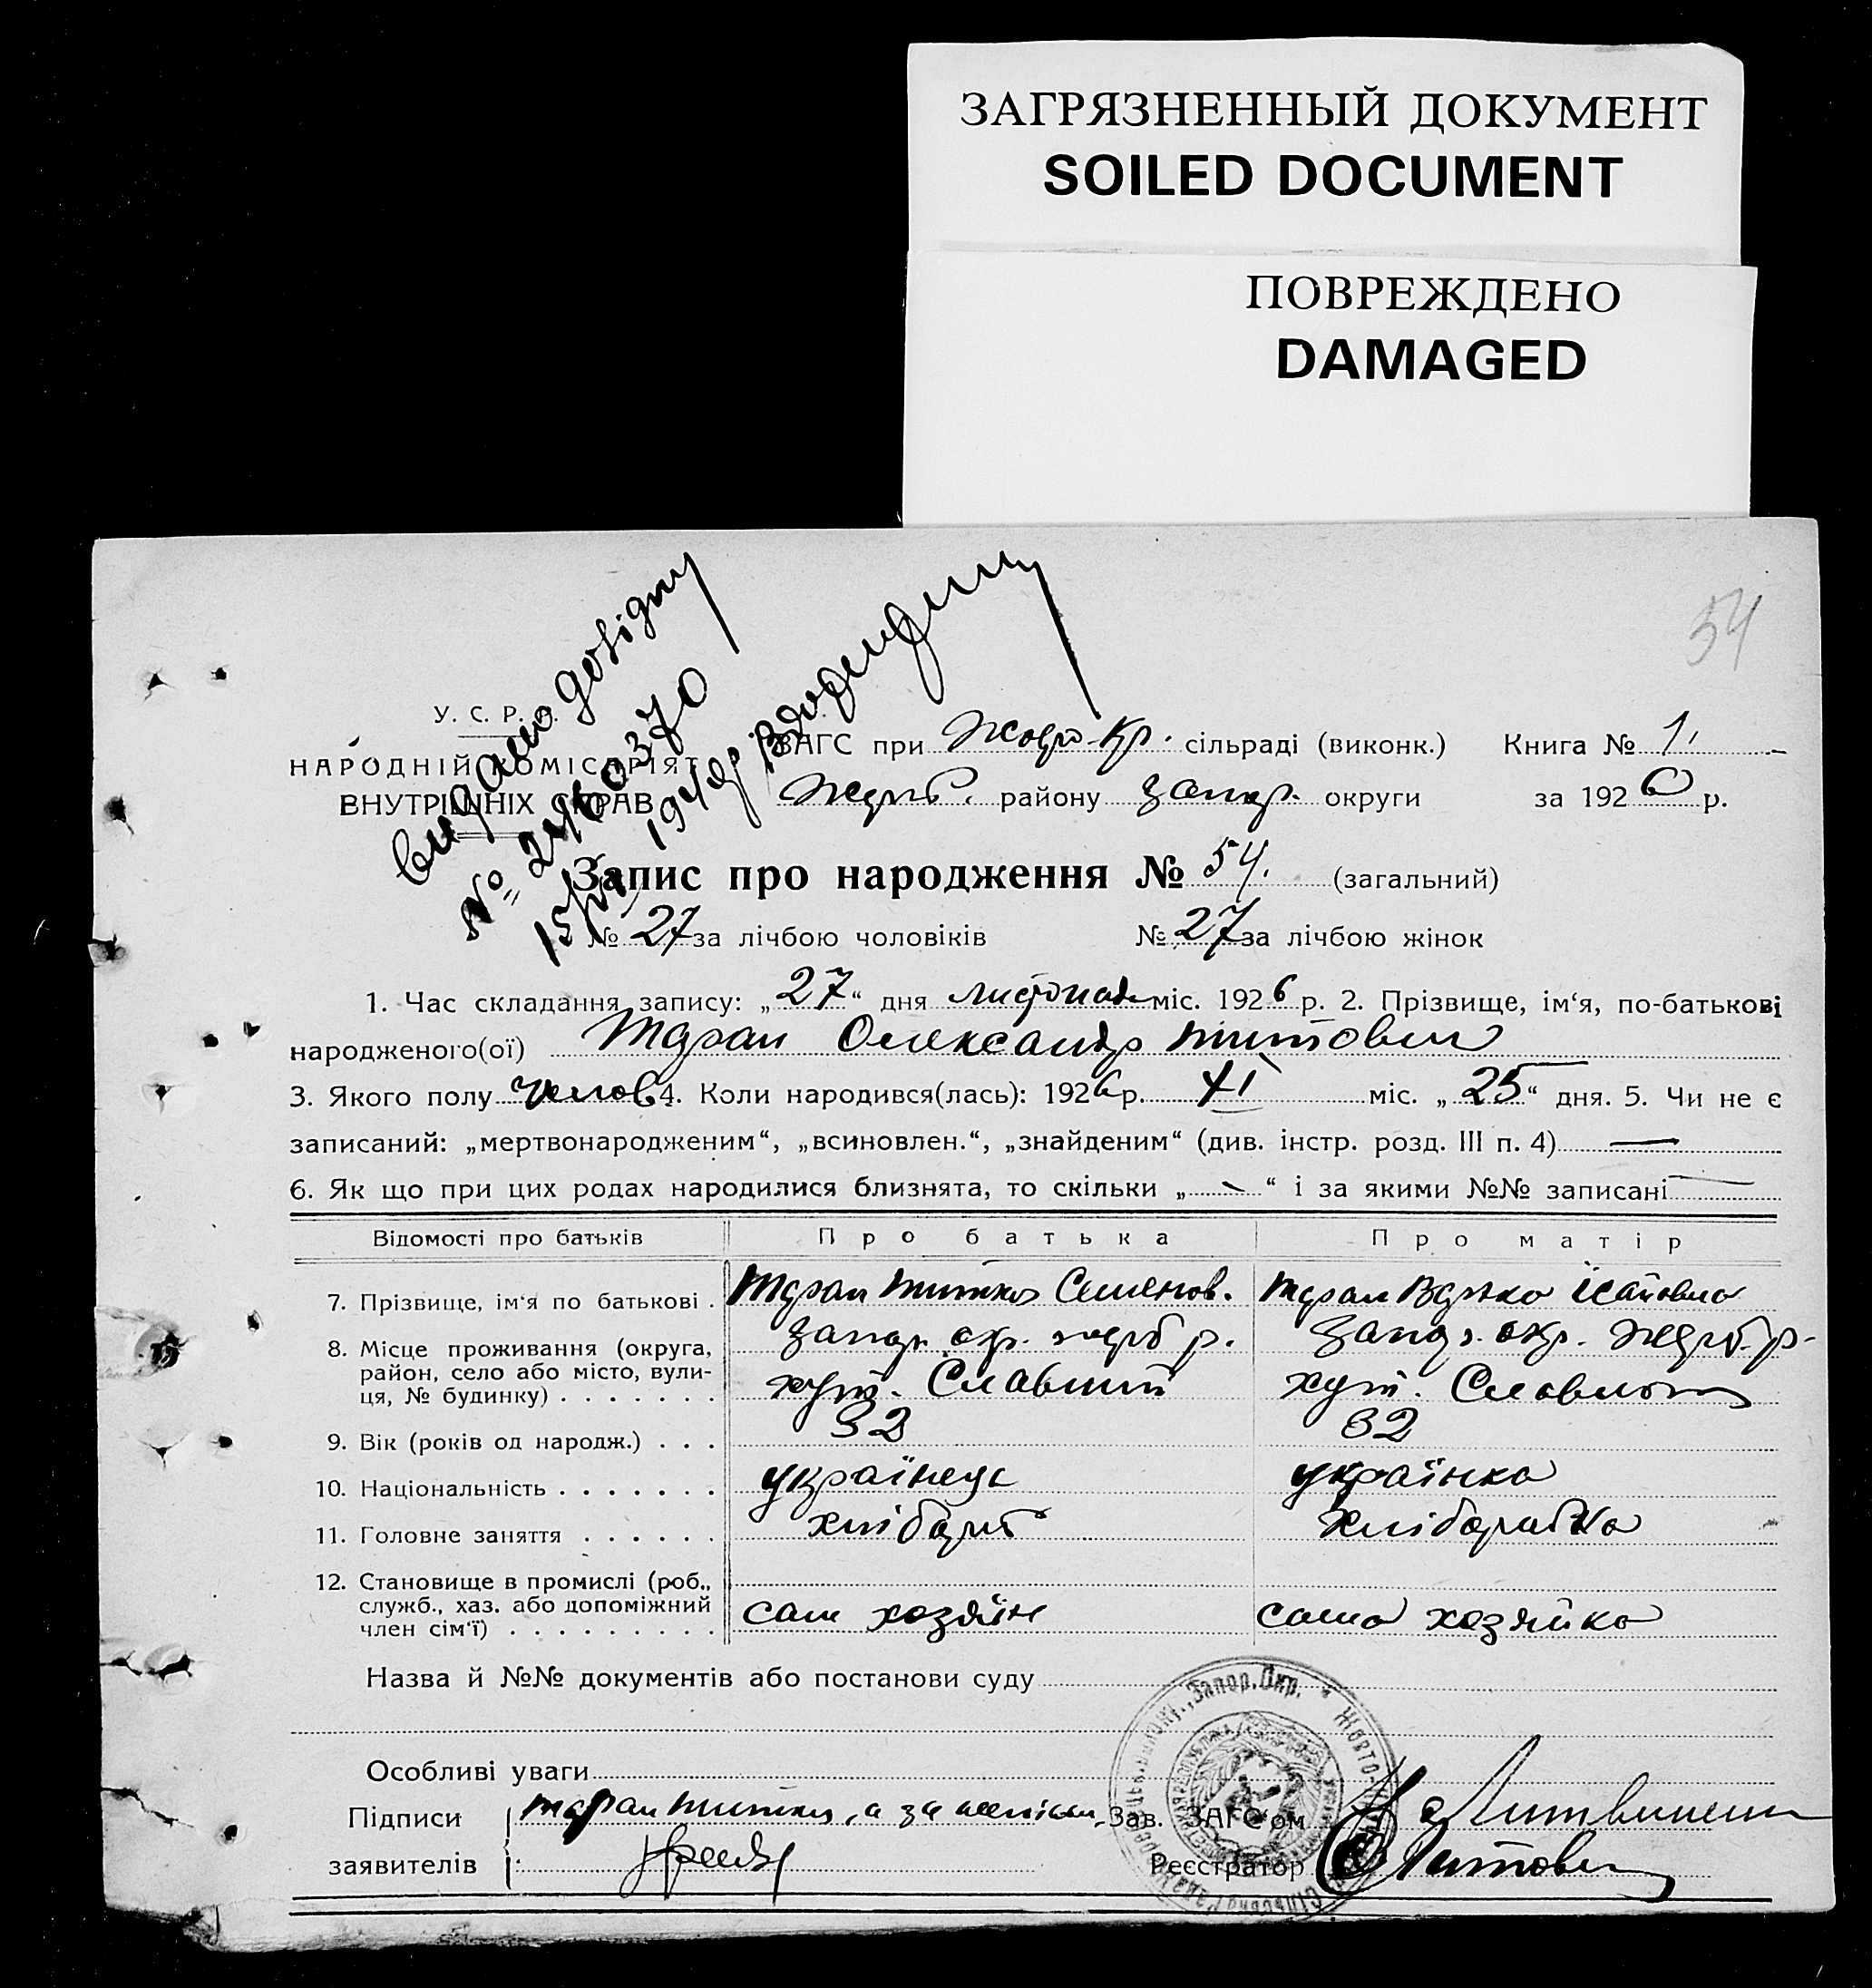 ЗАГРЯЗНЕННЫЙ ДОКУМЕНТ
SOILED DOCUMENT
ПОВРЕЖДЕНО
DAMAGED
54
видано довідку
№ 2460370
У. С. Р. Р.
НАРОДНІЙ КОМІСАРІЯТ
ВНУТРІШНІХ СПРАВ
ЗАГС при Жовто-Кр. сільраді (виконк.) Книга № 1
району Запор. округи за 1926 р.
Запис про народження № 54. (загальний)
№ 27 за лічбою чоловіків № 27 за лічбою жінок
1. Час складання запису: „27“ дня листопада міс. 1926 р. 2. Прізвище, ім‘я, по-батькові
народженого(ої) Таран Олександр Титович
3. Якого полу чолов 4. Коли народився(лась): 1926 р. XI міс. „25“ дня. 5. Чи не є
записаний: „мертвонародженим“, „всиновлен.“, „знайденим“ (див. інстр. розд. III п. 4) —
6. Як що при цих родах народилися близнята, то скільки „—“ і за якими №№ записані —
Відомості про батьків Про батька Про матір
7. Прізвище, ім‘я по батькові . Таран Титко Семенов. Таран
8. Місце проживання (округа, район, село або місто, вулиця, № будинку) . . . . . . . Запор. окр. жереб р. Запор. окр. жереб. р.
хут. хут.
9. Вік (років од народж.) . . . 32 32
10. Національність . . . . . . . українець українка
11. Головне заняття . . . . . . хлібороб хліборобка
12. Становище в промислі (роб., служб., хаз. або допоміжний член сім‘ї) . . . . . . . . . сам хозяїн сама хозяйка
Назва й №№ документів або постанови суду
Особливі уваги
Підписи Таран Титко, а за Зав. ЗАГС‘ом Литвинен
заявителів Реєстратор
Запор. Окр. * Жовто-